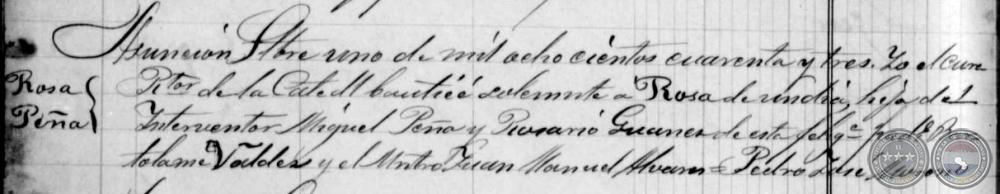 Asunción Stbre uno de mil ochocientos cuarenta y tres. Yo el cura
Rosa Rtor de la Catedl bautizé solemnte á Rosa de un dia, hija del
Peña Interventor Miguel Peña y Rosario Guanes de esta feligca padr Br
tolome Valdez y el Mntro Juan Manuel Alvarez = Pedro José Moreno